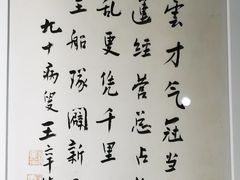 雲才气冠当
經营总占
乱更凭千里
船隊闢新
九十病叟王辛